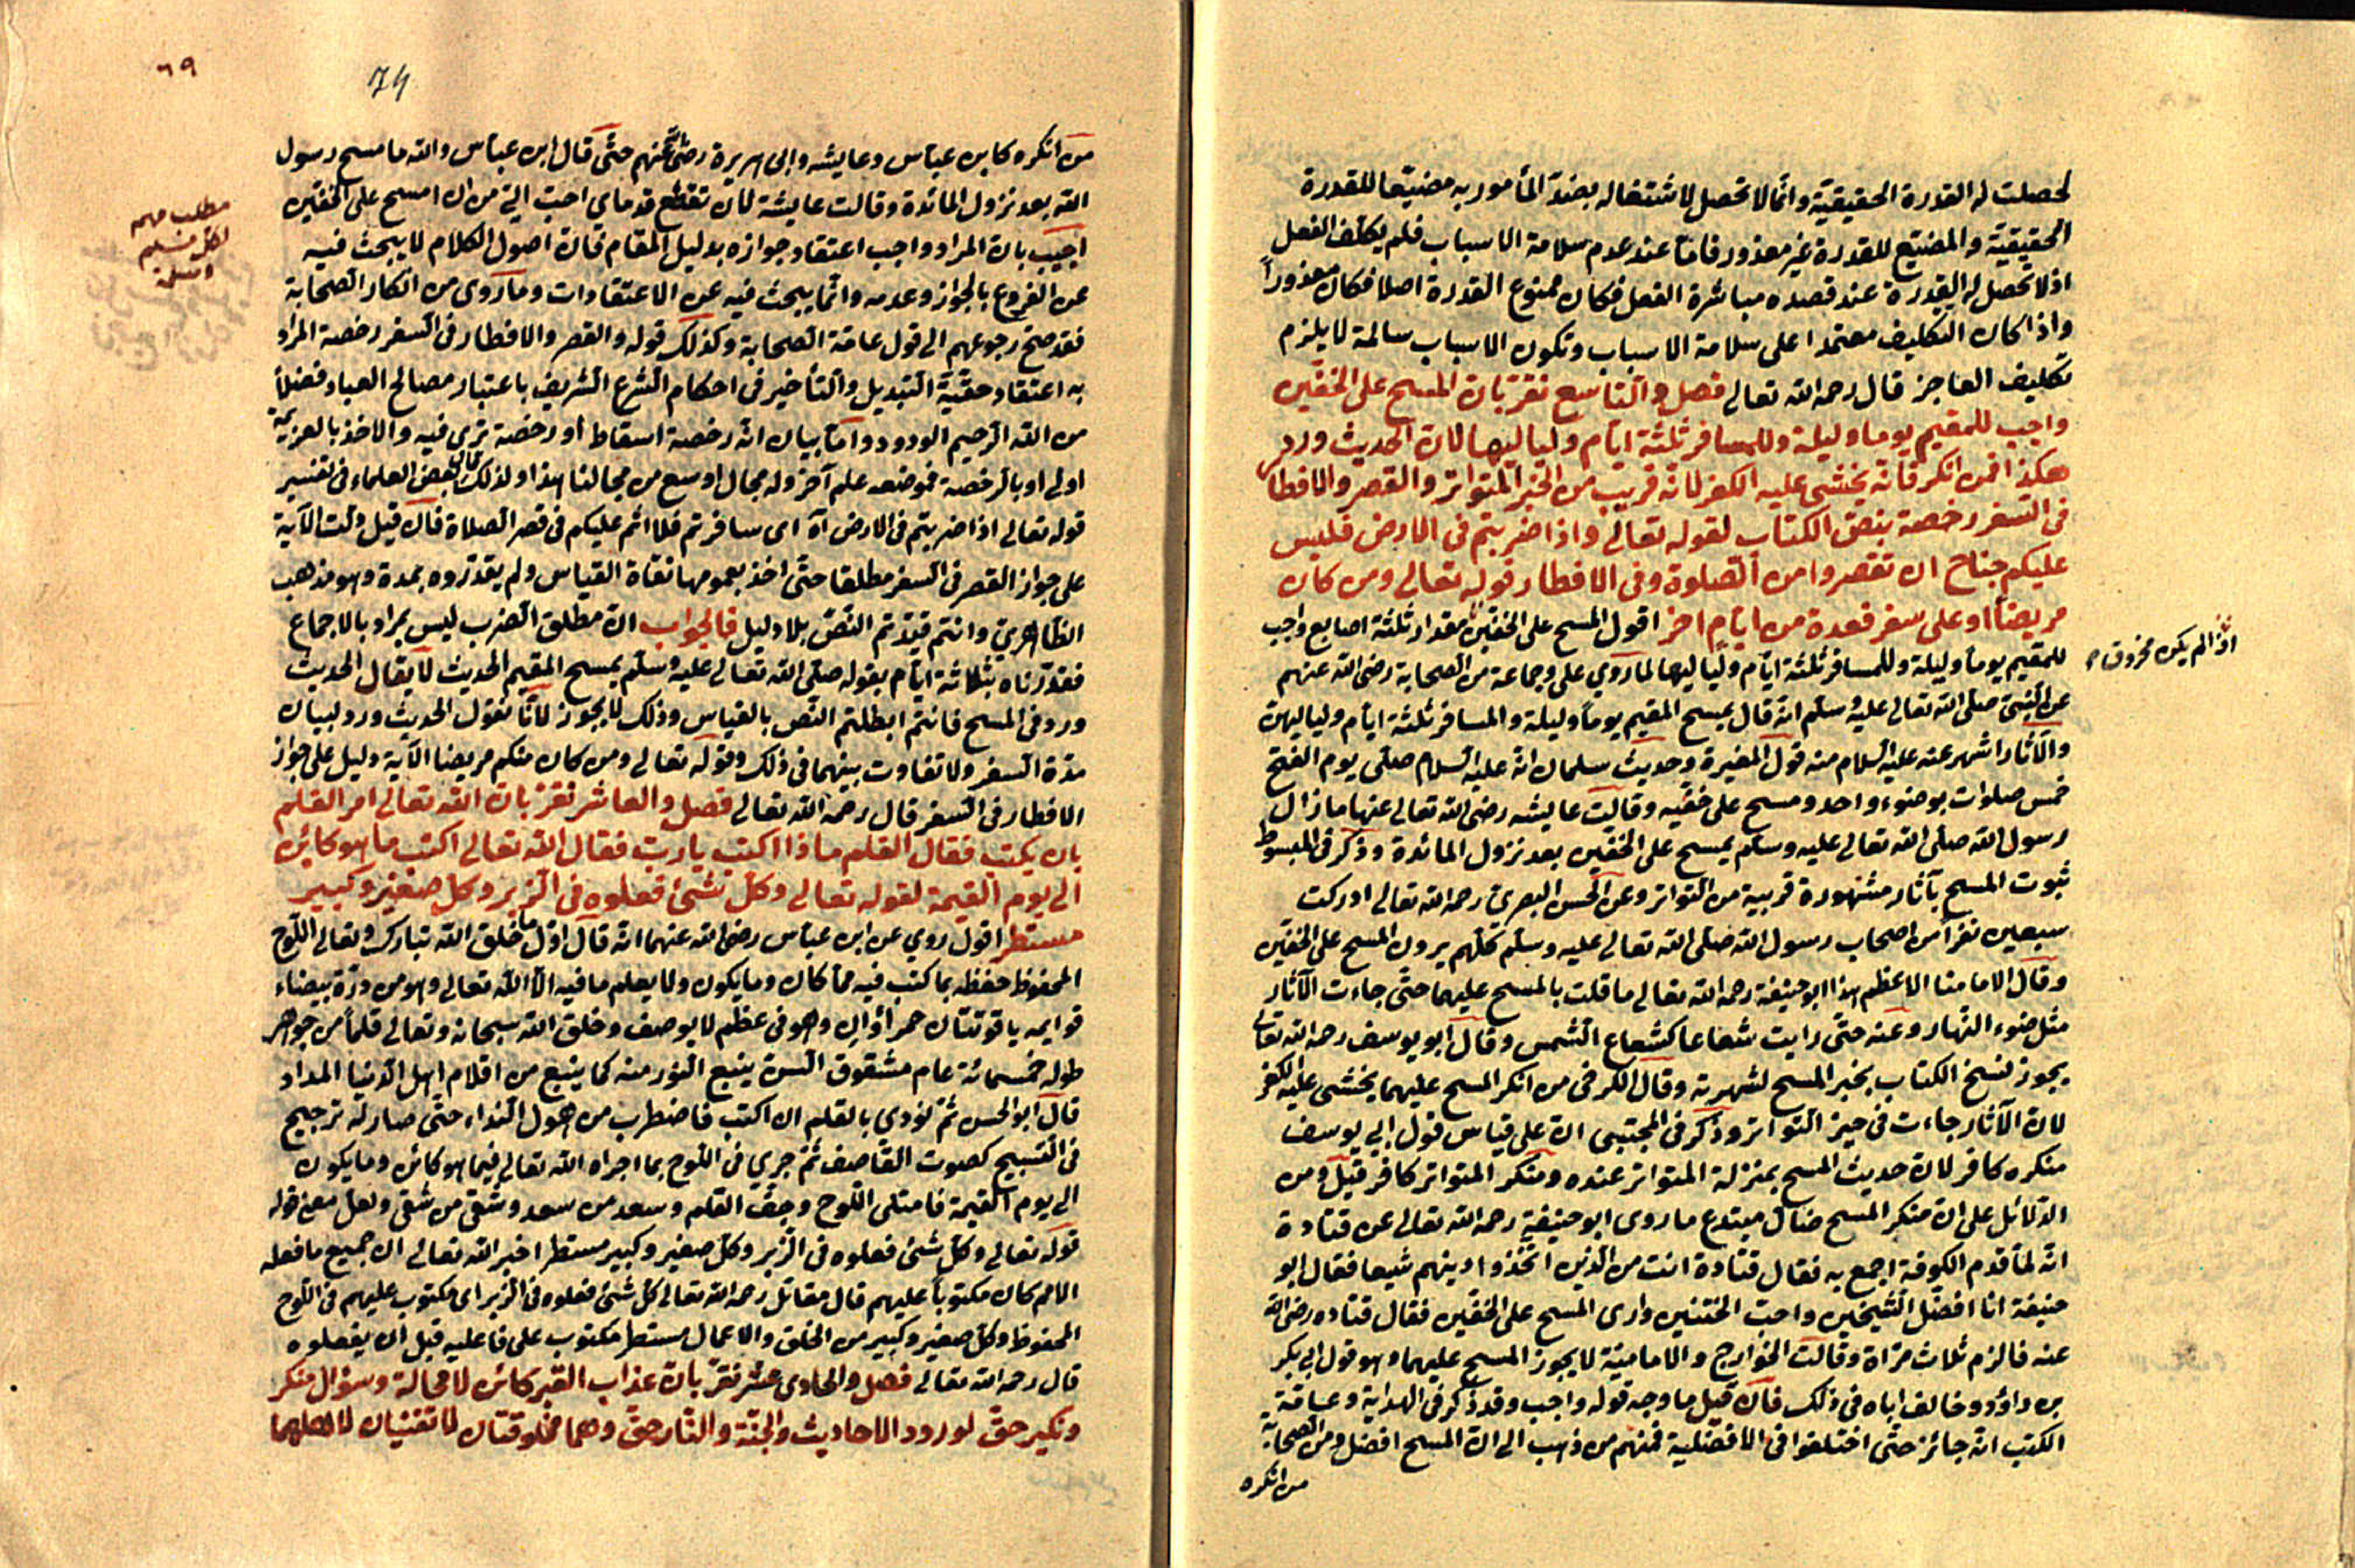 لحصلت له القدرة الحقيقية وانما لا تحصل لاشتغاله بضد المأمور به مضيعا للقدرة
الحقيقية والمضيع للقدرة غير معذور فاما عند عدم سلامة الاسباب فلم يكلف الفعل
اذ لا تحصل له القدرة عند قصده مباشرة الفعل فكان ممنوع القدرة اصلا فكان معذوراً
واذا كان التكليف معتمدا على سلامة الاسباب وتكون الاسباب سالمة لا يلزم
تكليف العاجز قال رحمه الله تعالى فصل والتاسع نقر بان المسح على الخفين
واجب للمقيم يوما وليلة وللمسافر ثلثة ايام ولياليها لان الحديث ورد
هكذا فمن انكر فانه يخشى عليه الكفر لانه قريب من الخبر المتواتر والقصر والافطار
فى السفر رخصة بنص الكتاب لقوله تعالى واذا ضربتم فى الارض فليس
عليكم جناح ان تقصروا من الصلوة وفى الافطار قوله تعالى ومن كان
مريضاً او على سفر فعدة من ايام اخر اقول المسح على الخفين مقدار ثلثة اصابع واجب
اذا لم يكن مخروق
للمقيم يوماً وليلة وللمسافر ثلثة ايام ولياليها لما روي على وجماعة من الصحابة رضى الله عنهم
عن النبى صلى الله تعالى عليه وسلم انه قال يمسح المقيم يوماً وليلة والمسافر ثلثة ايام ولياليهن
والآثار اشهر عنه عليه السلام منه قول المغيرة وحديث سلمان انه عليه السلام صلى يوم الفتح
خمس صلوات بوضوء واحد ومسح على خفيه وقالت عايشه رضى الله تعالى عنها ما زال
رسول الله صلى الله تعالى عليه وسلم يمسح على الخفين بعد نزول المائدة وذكر فى المبسوط
ثبوت المسح بآثار مشهورة قريبة من التواتر وعن الحسن البصرى رحمه الله تعالى ادركت
سبعين نفراً من اصحاب رسول الله صلى الله تعالى عليه وسلم كلهم يرون المسح على الخفين
وقال الامامنا الاعظم هذا ابو حنيفة رحمه الله تعالى ما قلت بالمسح عليهما حتى جاءت الآثار
مثل ضوء النهار وعنه حتى رايت شعاعا كشعاع الشمس وقال ابو يوسف رحمه الله تعالى
يجوز نسخ الكتاب بخبر المسح لشهرته وقال الكرخى من انكر المسح عليهما يخشى عليه الكفر
لان الآثار جاءت فى حيز التواتر وذكر فى المجتبى ان على قياس قول ابي يوسف
منكره كافر لان حديث المسح بمنزلة المتواتر عنده ومنكر المتواتر كافر قيل ومن
الدلائل على ان منكر المسح ضال مبتدع ما روى ابو حنيفة رحمه الله تعالى عن قتادة
انه لما قدم الكوفة اجمع به فقال قتادة انت من الذين اتخذوا دينهم شيعا فقال ابو
حنيفة انا افضل الشيخين واحب الختنين وارى المسح على الخفين فقال قتاده رضى الله
عنه فالزم ثلاث مراة وقالت الخوارج والامامية لا يجوز المسح عليهما وهو قول ابي بكر
بن داؤد وخالف اباه فى ذلك فان قيل ما وجه قوله واجب وقد ذكر فى الهداية وعامة
الكتب انه جائز حتى اختلفوا فى الافضلية فمنهم من ذهب الى ان المسح افضل ومن الصحابة
من انكره
٦٩
74
من انكره كابن عباس وعايشه وابى هريرة رضى الله عنهم حتى قال ابن عباس والله ما مسح رسول
الله بعد نزول المائدة وقالت عايشة لان تقطع قدماى احب الى من ان امسح على الخفين
مطلب مهم
لكل مسلم
ومسلمة
اجيب بان المراد واجب اعتقاد جوازه بدليل المقام فان اصول الكلام لا يبحث فيه
عن الفروع بالجواز وعدمه وانما يبحث فيه عن الاعتقادات وما روى من انكار الصحابة
فقد صح رجوعهم الى قول عامة الصحابة وكذلك قوله والقصر والافطار فى السفر رخصة المراد
به اعتقاد حقية التبديل والتأخير فى احكام الشرع الشريف باعتبار مصالح العباد فضلاً
من الله الرحيم الودود واما بيان انه رخصة اسقاط او رخصة ترفيه والاخذ بالعزيمة
اولى او بالرخصة فموضعه علم آخر وله مجال اوسع من مجالنا هذا ولذلك قال بعض العلماء فى تفسير
قوله تعالى اذا ضربتم فى الارض آه اى سافرتم فلا اثم عليكم فى قصر الصلاة فان قيل دلت الآية
على جواز القصر فى السفر مطلقا حتى اخذ بعمومها نفاة القياس ولم يقدروه بمدة وهو مذهب
الظاهرى وانتم قيدتم النص بلا دليل فالجواب ان مطلق الضرب ليس بمراد بالاجماع
فقدرناه بثلاثة ايام بقوله صلى الله تعالى عليه وسلم يمسح المقيم الحديث لا يقال الحديث
ورد فى المسح فانتم ابطلتم النص بالقياس وذلك لا يجوز لانا نقول الحديث ورد لبيان
مدة السفر ولا تفاوت بينهما فى ذلك وقوله تعالى ومن كان منكم مريضا الآية دليل على جواز
الافطار فى السفر قال رحمه الله تعالى فصل والعاشر نقر بان الله تعالى امر القلم
بان يكتب فقال القلم ماذا اكتب يا رب فقال الله تعالى اكتب ما هو كائن
الى يوم القيمة لقوله تعالى وكل شئ فعلوه فى الزبر وكل صغير وكبير
مستطر اقول روي عن ابن عباس رضى الله عنهما انه قال اول ما خلق الله تبارك وتعالى اللوح
المحفوظ حفظه بما كتب فيه مما كان وما يكون ولا يعلم ما فيه الا الله تعالى وهو من درة بيضاء
قوايمه ياقوتتان حمراوان وهو فى عظم لا يوصف وخلق الله سبحانه وتعالى قلماً من جوهر
طوله خمسمائة عام مشقوق السن ينبع النور منه كما ينبع من اقلام اهل الدنيا المداد
قال ابو الحسن ثم نودي بالقلم ان اكتب فاضطرب من هول النداء حتى صار له ترجيح
فى التسبيح كصوت القاصف ثم جري فى اللوح بما اجراه الله تعالى فيما هو كائن وما يكون
الى يوم القيمة فامتلى اللوح وجف القلم وسعد من سعد وشقى من شقى ولعل معنى قوله
قوله تعالى وكل شئ فعلوه فى الزبر وكل صغير وكبير مستطر اخبر الله تعالى ان جميع ما فعله
الامم كان مكتوباً عليهم قال مقاتل رحمه الله تعالى كل شئ فعلوه فى الزبر اى مكتوب عليهم فى اللوح
المحفوظ وكل صغير وكبير من الخلق والاعمال مستطر مكتوب على فاعليه قبل ان يفعلوه
قال رحمه الله تعالى فصل والحادى عشر نقر بان عذاب القبر كائن لا محالة وسؤال منكر
ونكير حق لورود الاحاديث والجنة والنار حق وهما مخلوقتان لا تفنيان لاهلهما